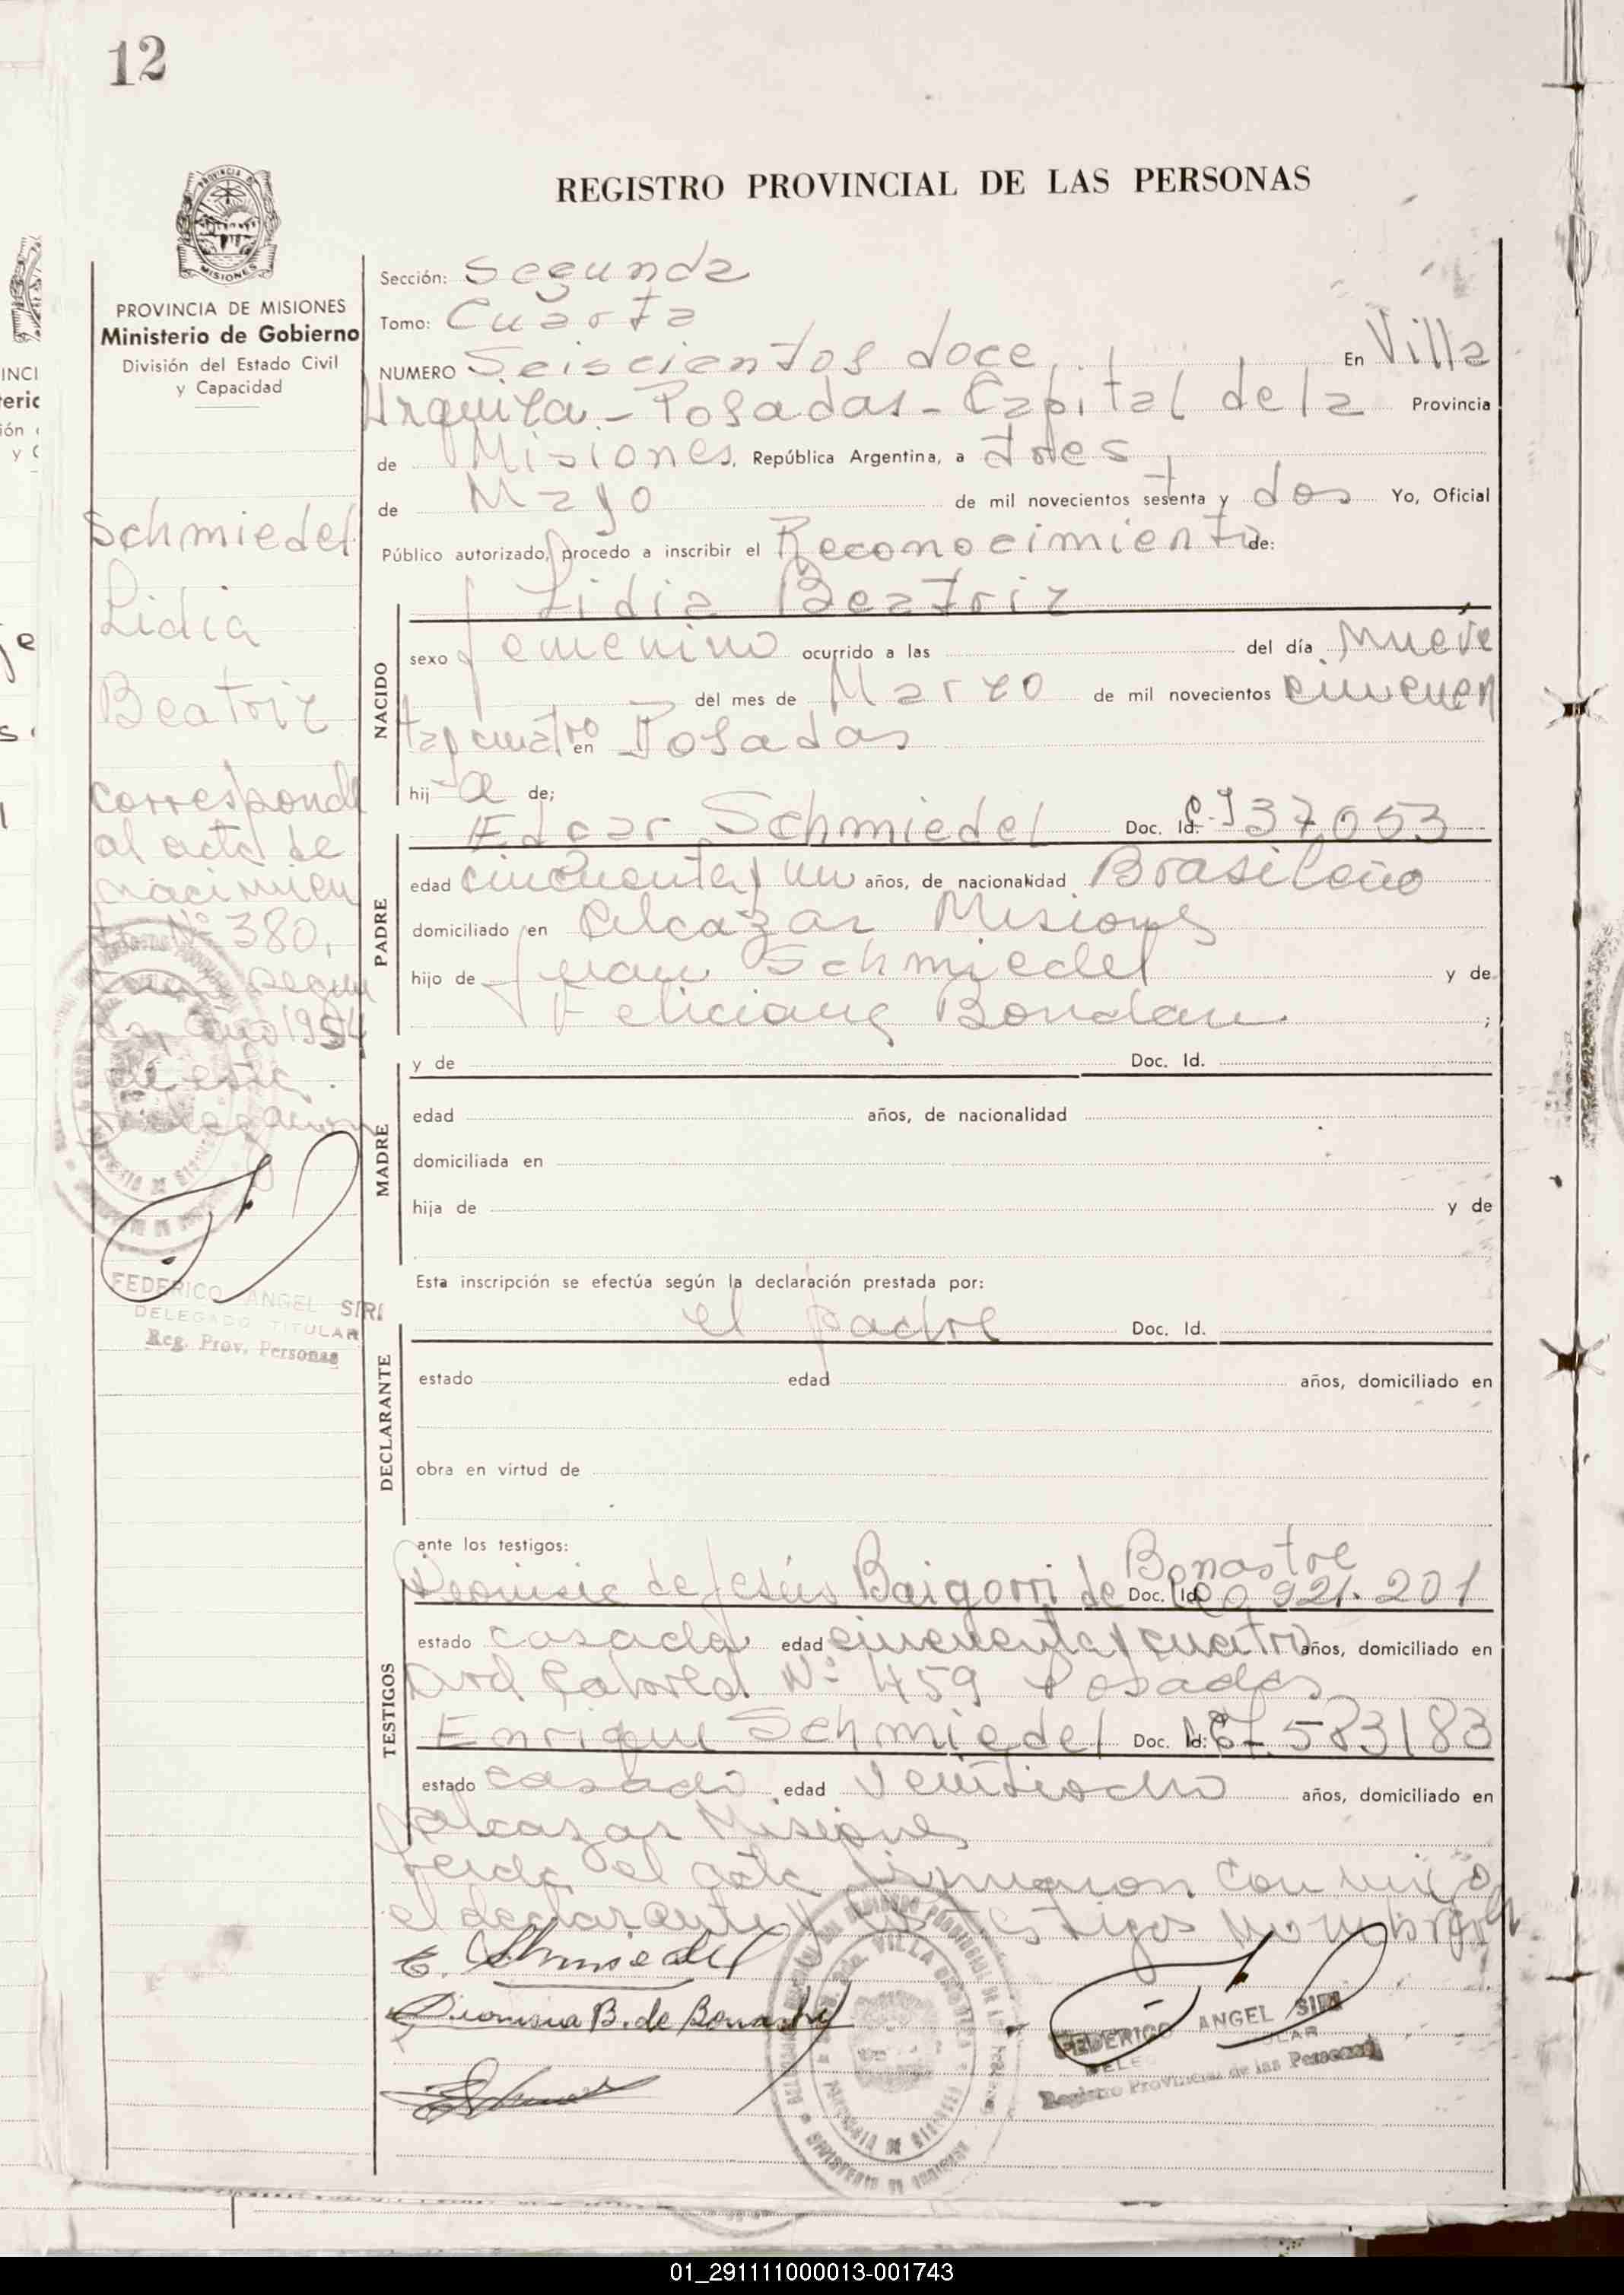 12
REGISTRO PROVINCIAL DE LAS PERSONAS
PROVINCIA DE MISIONES
Ministerio de Gobierno
División del Estado Civil
y Capacidad
Schmiedel
Lidia
Beatriz
corresponde
al acta de
nacimien
to Nº 380,
tomo segun
do, año 1954
de esta
Delegación
FEDERICO ANGEL SIRI
DELEGADO TITULAR
Reg. Prov. Personas
Sección: Segunda
Tomo: Cuarta
NUMERO Seiscientos doce, En Villa
Urquiza - Posadas - Capital de la Provincia
de Misiones, República Argentina, a tres
de Mayo de mil novecientos sesenta y dos Yo, Oficial
Público autorizado, procedo a inscribir el Reconocimiento de:
Lidia Beatriz
NACIDO
sexo femenino ocurrido a las del día Nueve
del mes de Marzo de mil novecientos cincuen
ta y cuatro en Posadas
hija de;
PADRE
Edgar Schmiedel Doc. Id. C.I 37.053
edad cincuenta y un años, de nacionalidad Brasileño
domiciliado en Alcazar Misiones
hijo de Juan Schmiedel y de
Feliciana Bondan ;
MADRE
y de Doc. Id.
edad años, de nacionalidad
domiciliada en
hija de y de
Esta inscripción se efectúa según la declaración prestada por:
DECLARANTE
el padre Doc. Id.
estado edad años, domiciliado en
obra en virtud de
ante los testigos:
TESTIGOS
Dionisia de Jesús Baigorri de Bonastre Doc. Id. 921.201
estado casada edad cincuenta y cuatro años, domiciliado en
Cabred Nº 459 Posadas
Enrique Schmiedel Doc. Id: C.I. 583183
estado casado edad veintiocho años, domiciliado en
Alcazar Misiones
leida el acta firmaron con migo
el declarante y los testigos nombrados
E. Schmiedel
Dionisia B. de Bonastre
FEDERICO ANGEL SIRI
Registro Provincial de las Personas
01_291111000013-001743